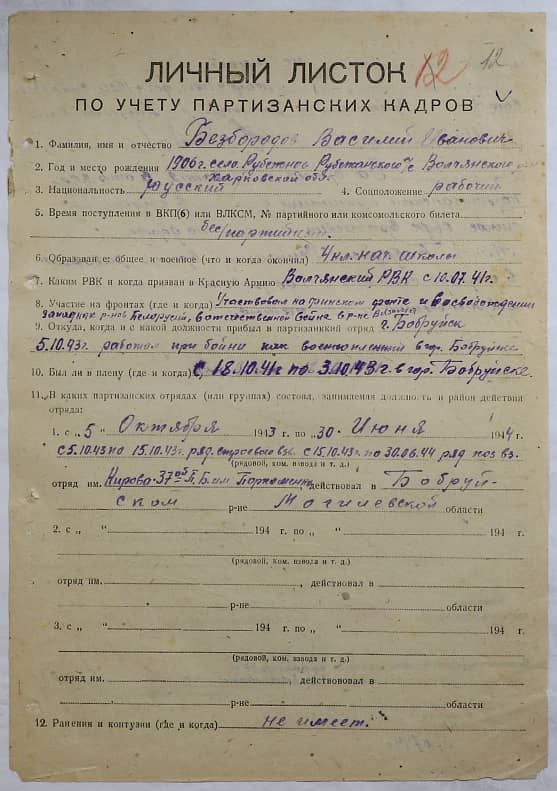 12
12
ЛИЧНЫЙ ЛИСТОК
ПО УЧЕТУ ПАРТИЗАНСКИХ КАДРОВ
1. Фамилия, имя и отчество Безбородов Василий Иванович
2. Год и место рождения 1906 г. село Рубежное Рубежанского с/с Волчянского
Харковской обл.
3. Национальность русский 4. Соцположение рабочий
5. Время поступления в ВКП(б) или ВЛКСМ, № партийного или комсомольского билета
беспартийный
6. Образован е: общее и военное (что и когда окончил) 4 кл. нач. школы
7. Каким РВК и когда призван в Красную Армию Волчянский РВК с 10.07.41 г.
8. Участие на фронтах (где и когда) Участвовал на финском фронте и в освобождении
западных р-нов Белорусии, в отечественной войне в р-не
9. Откуда, когда и с какой должности прибыл в партизанкий отряд г. Бобруйск
5.10.43 г. работал при бойни как военнопленный в гор. Бобруйске
10. Был ли в плену (где и когда) с 18.10.41 г. по 3.10.43 г. в гор. Бобруйске.
11. В каких партизанских отрядах (или группах) состоял, занимаемая должность и район действия
отряда:
1. с „5 “ Октября 1943 г. по „30 “ Июня 1944 г.
с 5.10.43 по 15.10.43 г. ряд. строевого вз. с 15.10.43 г. по 30.06.44 ряд. хоз вз.
(рядовой, ком. взвода и т. д.)
отряд им. Кирова 37ой П. Б. им Пархоменко действовал в Бобруй-
ском р-не Могилевской области
2. с „ “ 194 г. по „ “ 194 г.
(рядовой, ком. взвода и т. д.)
отряд им. , действовал в
р-не области
3. с „ “ 194 г. по „ “ 194 г.
(рядовой, ком. взвода и т. д.)
отряд им. , действовал в
р-не области
12. Ранения и контузии (где и когда) не имеет.